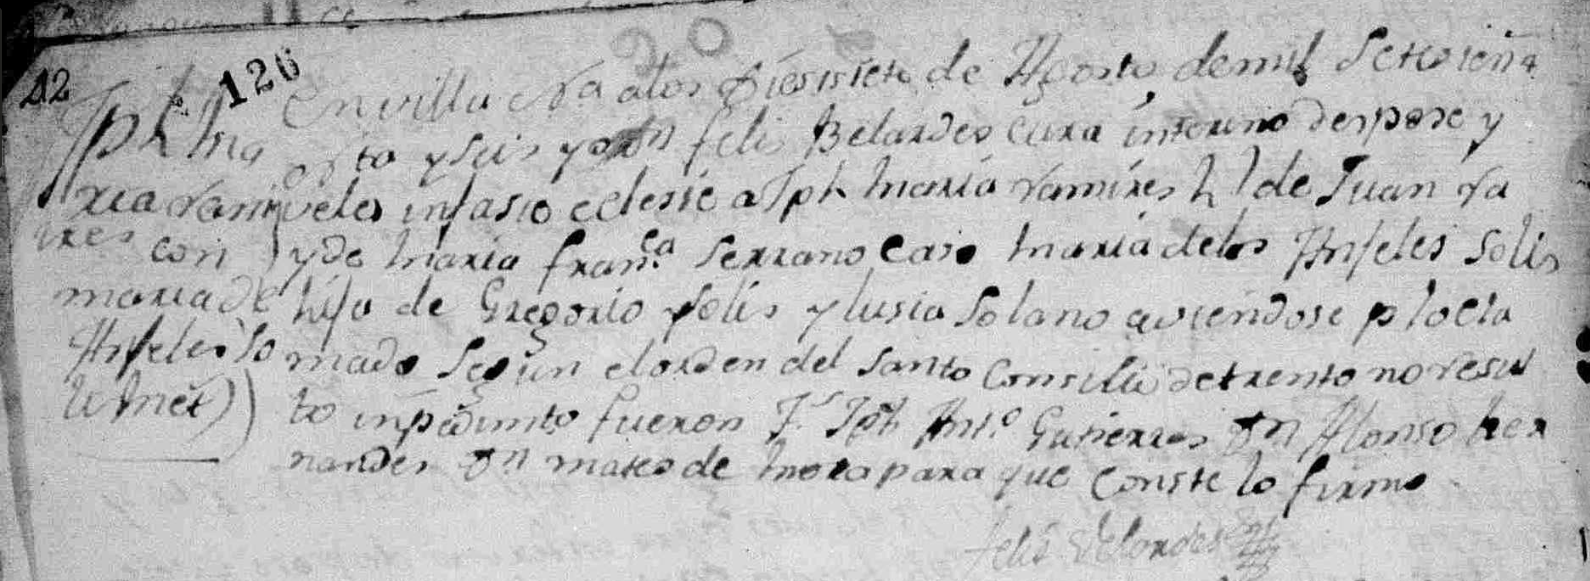 42
120
Jph Ma
ria Rami
res con
maria de
Anjeles So
lis
En villa Na a los diesisiete de Agosto de mil Setesiens
osto y seis yo Dn felis Belardes cura interino despose y
vele infasie eclesie a Jph maria ramires h l de Juan Ra
y de maria franca Serrano Caso maria de los Anjeles Solis
hija de Gregorio Solis y lusia Solano aviendose procla
mado Segun el orden del Santo Consilio de trento no resul
to inpedimto fueron Jph Anto Gutierres Dn Alonso her
nandes Dn mateo de mora para que Conste lo firmo
felis Velardes